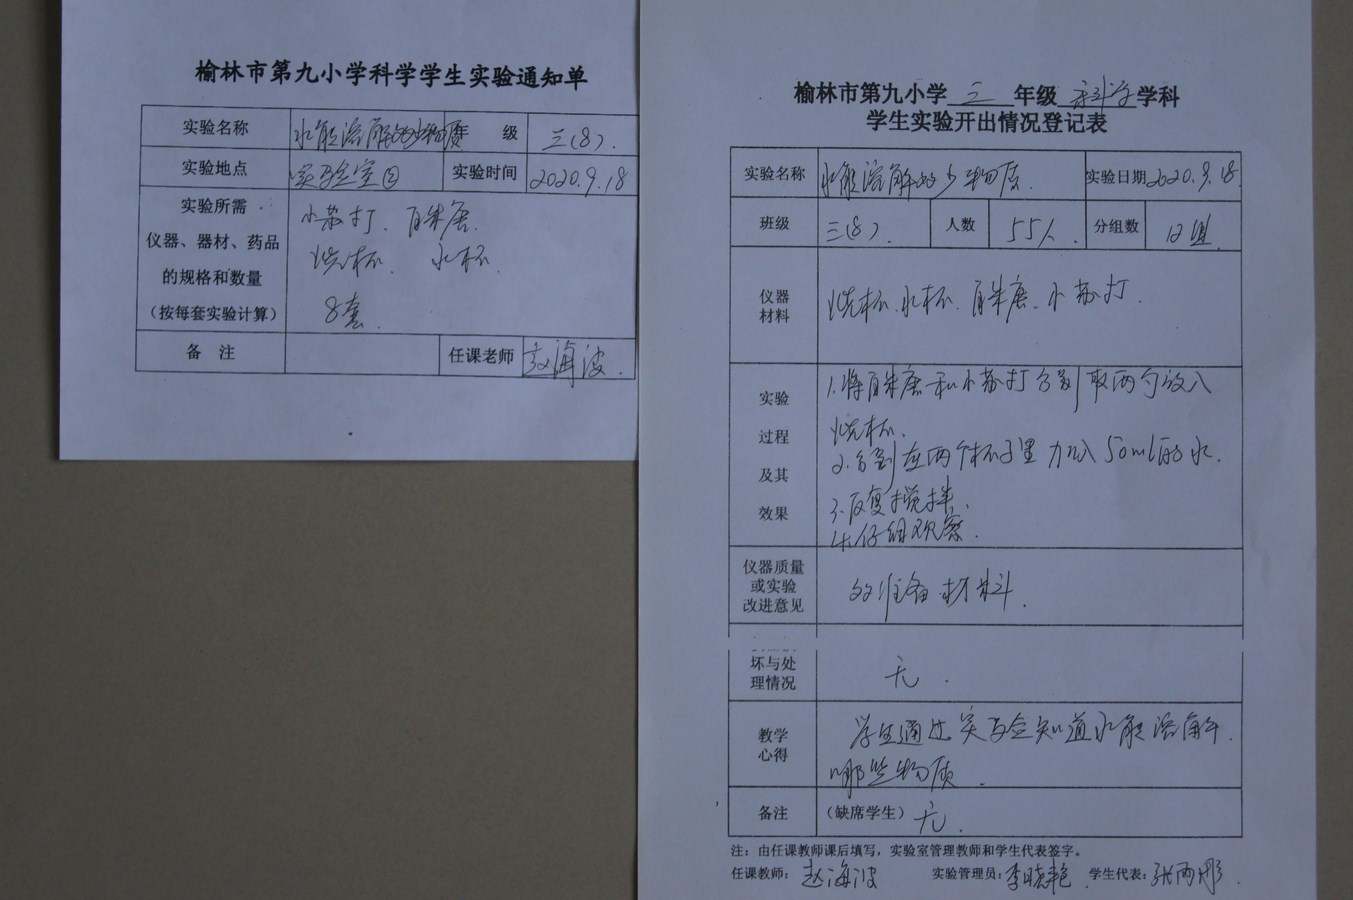 榆林市第九小学科学学生实验通知单
实验名称 水能溶解多少物质 年 级 三(8).
实验地点 实验室 实验时间 2020.9.18
实验所需
仪器、器材、药品
的规格和数量
(按每套实验计算)
小苏打、白朱唐.
烧杯、水杯.
8套.
备 注 任课老师 赵海波.
榆林市第九小学 三 年级 科学 学科
学生实验开出情况登记表
实验名称 水能溶解多少物质. 实验日期 2020.9.18.
班级 三(8). 人数 55人. 分组数 12组.
仪器
材料
烧杯.水杯.白朱唐.小苏打.
实验
过程
及其
效果
1.将白朱唐和小苏打分别取两勺放入
烧杯.
2.分别在两个杯子里加入50ml的水.
3.反复搅拌.
4.仔细观察.
仪器质量
或实验
改进意见
准备材料.
坏与处
理情况
无.
教学
心得
学生通过实验知道水能溶解
哪些物质.
备注 (缺席学生) 无.
注：由任课教师课后填写，实验室管理教师和学生代表签字。
任课教师: 赵海波 实验管理员: 李晓艳 学生代表: 张雨彤.